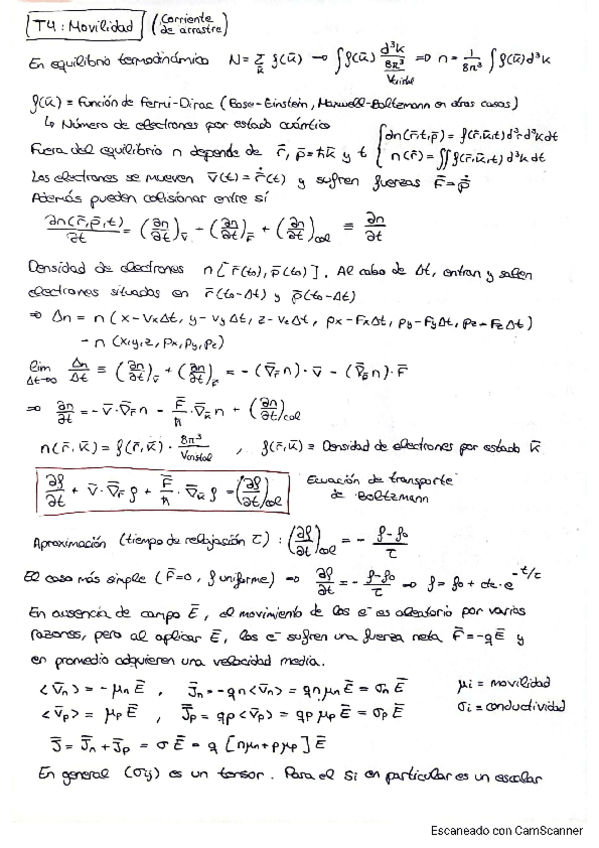 T4: Movilidad (Corriente de arrastre)
En equilibrio termodinámico N = Σ_k̄ f(ū) → ∫ f(ū) d³k / (8π³/Vcristal) ⇒ n = 1/8π³ ∫ f(ū) d³k
f(ū) = Función de Fermi-Dirac (Bose-Einstein, Maxwell-Boltzmann en otros casos)
↳ Número de electrones por estado cuántico
Fuera del equilibrio n depende de r̄, p̄ = ħk̄ y t { dn(r̄,t,p̄) = f(r̄,ū,t) d³r d³k dt
n(r̄) = ∬ f(r̄,ū,t) d³k dt
Los electrones se mueven v̄(t) = ṙ̄(t) y sufren fuerzas F̄ = ṗ̄
Además pueden colisionar entre sí
∂n(r̄,p̄,t)/∂t = (∂n/∂t)_v̄ + (∂n/∂t)_F̄ + (∂n/∂t)_col ≡ ∂n/∂t
Densidad de electrones n[r̄(t₀), p̄(t₀)]. Al cabo de Δt, entran y salen
electrones situados en r̄(t₀-Δt) y p̄(t₀-Δt)
⇒ Δn = n(x-VxΔt, y-VyΔt, z-VzΔt, px-FxΔt, py-FyΔt, pz-FzΔt)
- n(x,y,z, px,py,pz)
lim Δt→∞ Δn/Δt ≡ (∂n/∂t)_v̄ + (∂n/∂t)_F̄ = -(∇̄_r̄ n)·v̄ - (∇̄_p̄ n)·F̄
⇒ ∂n/∂t = -v̄·∇̄_r̄ n - F̄/ħ·∇̄_k̄ n + (∂n/∂t)_col
n(r̄,k̄) = f(r̄,k̄)·8π³/Vcristal , f(r̄,k̄) ≡ Densidad de electrones por estado k̄
∂f/∂t + v̄·∇̄_r̄ f + F̄/ħ·∇̄_ū f = (∂f/∂t)_col Ecuación de transporte de Boltzmann
Aproximación (tiempo de relajación τ): (∂f/∂t)_col = - (f-f₀)/τ
El caso más simple (F̄=0, f uniforme) ⇒ ∂f/∂t = - (f-f₀)/τ ⇒ f = f₀ + cte·e^(-t/τ)
En ausencia de campo Ē, el movimiento de los e⁻ es aleatorio por varias
razones, pero al aplicar Ē, los e⁻ sufren una fuerza neta F̄ = -qĒ y
en promedio adquieren una velocidad media.
<v̄n> = -μnĒ , J̄n = -qn<v̄n> = qnμnĒ = σnĒ μi ≡ movilidad
<v̄p> = μpĒ , J̄p = qp<v̄p> = qpμpĒ = σpĒ σi = conductividad
J̄ = J̄n + J̄p = σĒ = q[nμn + pμp]Ē
En general (σij) es un tensor. Para el Si en particular es un escalar
Escaneado con CamScanner